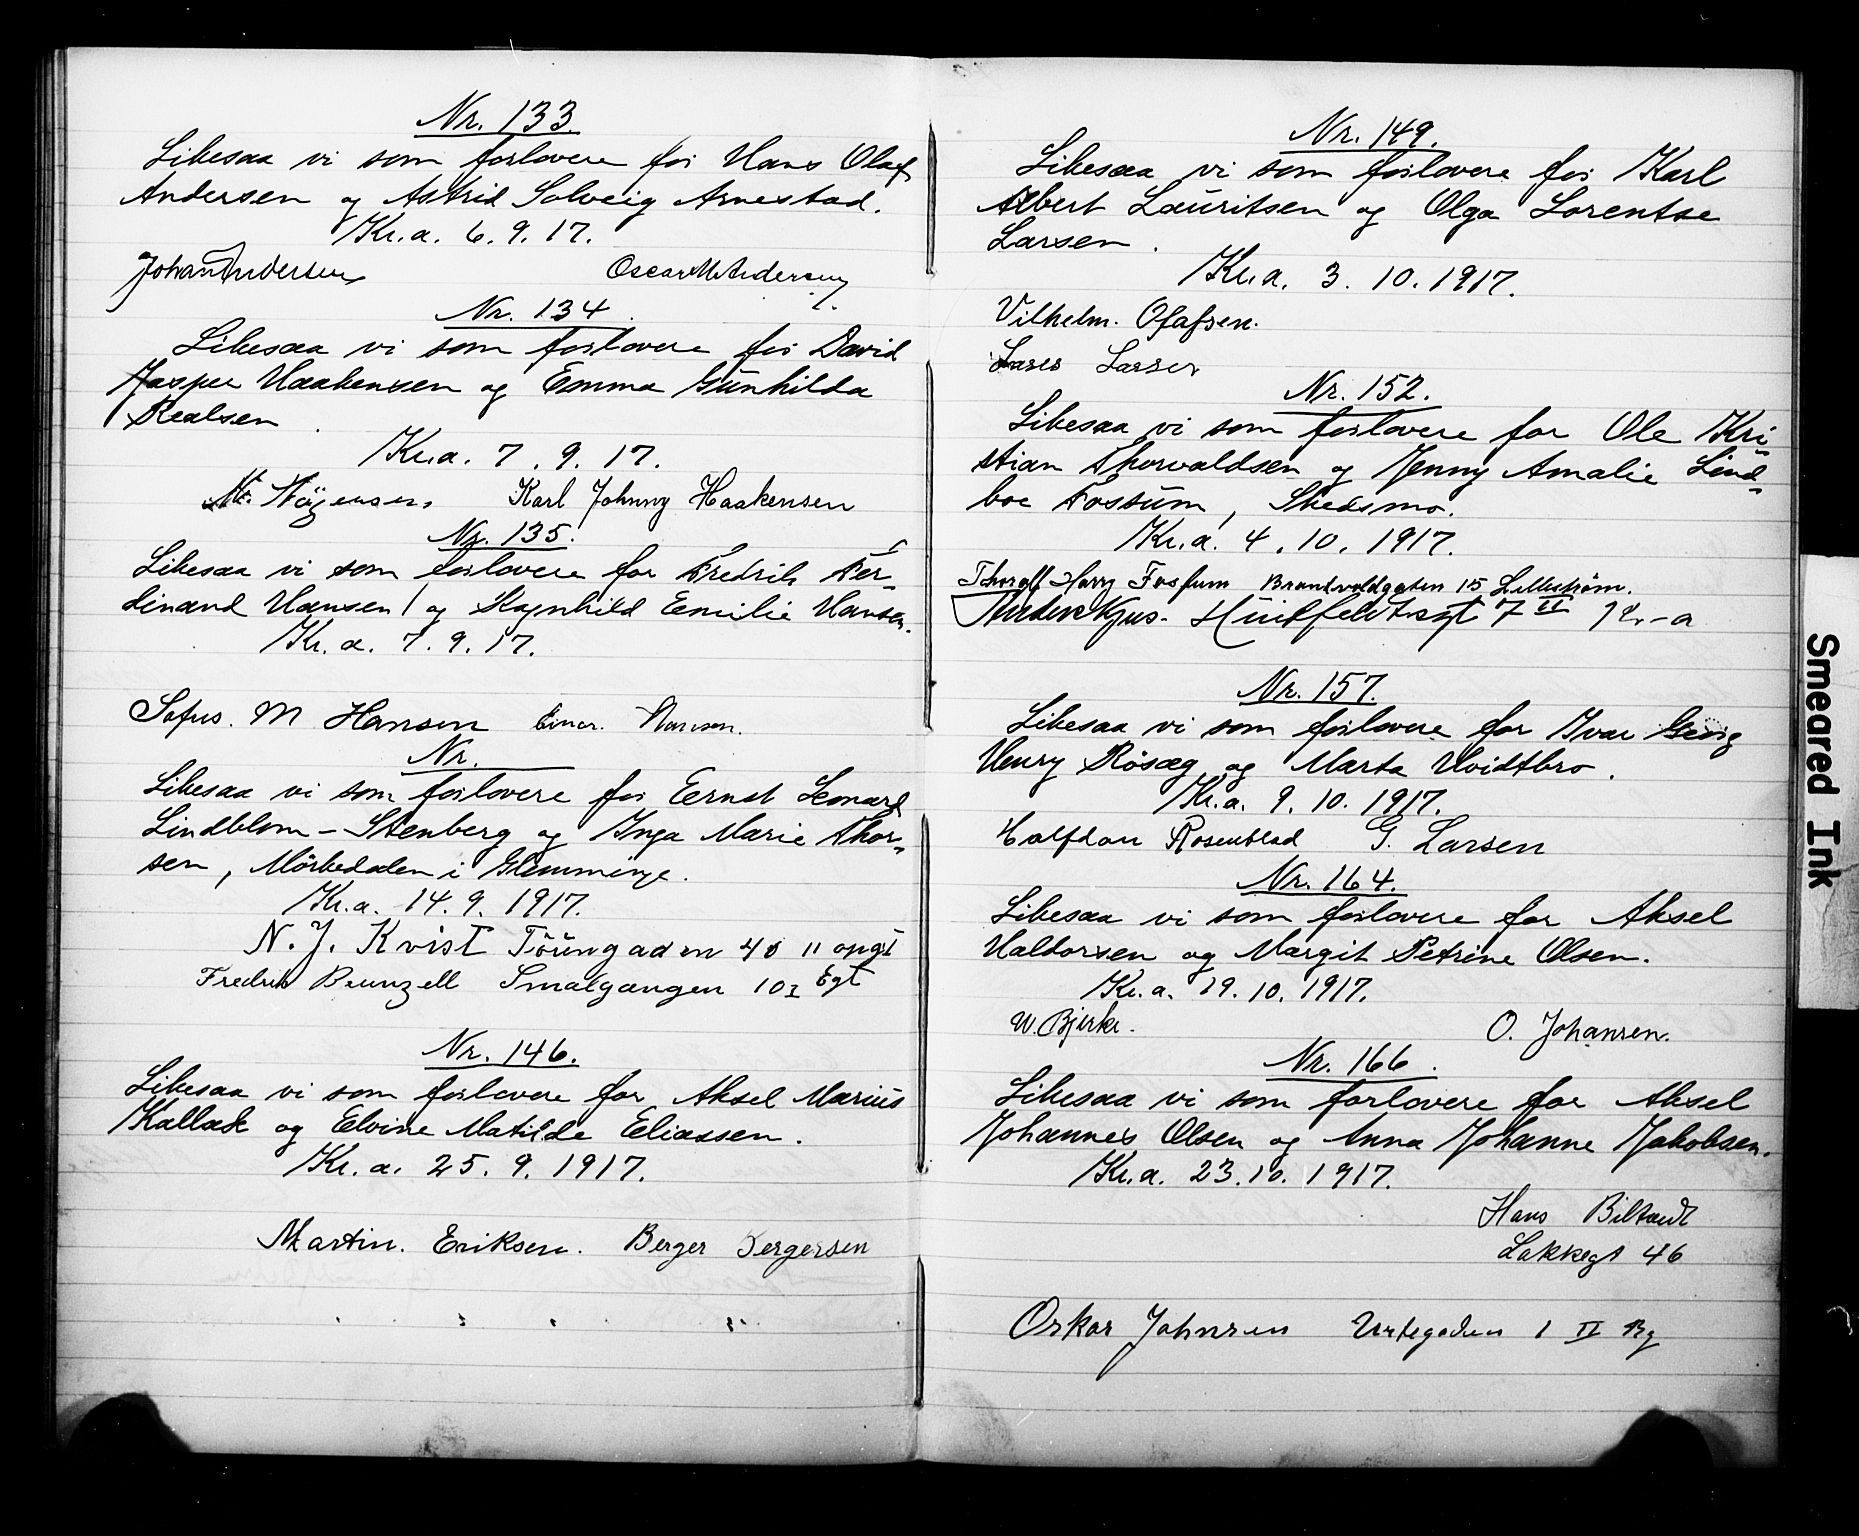 Nr. 133.
Likesaa vi som forlovere for Hans Olaf
Andersen og Astrid Solveig Arnestad.
Kr.a. 6. 9. 17.
Johan Andersen Oscar M Andersen
Nr. 134.
Likesaa vi som forlovere for David
Jasper Haakensen og Emma Gunhilda
Realsen.
Kr.a. 7. 9. 17.
Karl Johnny Haakensen
Nr. 135.
Likesaa vi som forlovere for Fredrik Fer-
dinand Hansen og Ragnhild Emilie Hansen.
Kr.a. 7. 9. 17.
Sofus. M Hansen Einar. Hansen.
Nr.
Likesaa vi som forlovere for Ernst Leonard
Lindblom - Stenberg og Inga Marie Thor-
sen, Mørkedalen i Glemminge.
Kr.a. 14. 9. 1917.
N. J. Kvist Töiengaden 40 II opgt
Fredrik Brunzell Smalgangen 10 I Egt
Nr. 146.
Likesaa vi som forlovere for Aksel Marius
Kallak og Elvine Matilde Eliassen.
Kr.a. 25. 9. 1917.
Martin. Eriksen. Berger Bergersen
Nr. 149.
Likesaa vi som forlovere for Karl
Albert Lauritsen og Olga Lorentse
Larsen.
Kr.a. 3. 10. 1917.
Vilhelm. Olafsen.
Lars Larsen
Nr. 152.
Likesaa vi som forlovere for Ole Kri-
stian Thorvaldsen og Jenny Amalie Lind-
boe Fossum, Skedsmo.
Kr.a. 4. 10. 1917.
Thorolf Harry Fossum Brandvoldgaten 15 Lillestrøm.
Huitfeldtsgt 7 II Kr-a
Nr. 157.
Likesaa vi som forlovere for Ivar Georg
Henry Røsæg og Marta Hvidtbro.
Kr.a. 9. 10. 1917.
Halfdan Rosenblad G. Larsen
Nr. 164.
Likesaa vi som forlovere for Aksel
Haldorsen og Margit Petrine Olsen.
Kr.a. 19. 10. 1917.
W. Bjerke. O. Johansen.
Nr. 166.
Likesaa vi som forlovere for Aksel
Johannes Olsen og Anna Johanne Jakobsen.
Kr.a. 23. 10. 1917.
Hans
Lakkegt 46
Oskar Johnsen Urtegaden 1 II
Smeared Ink